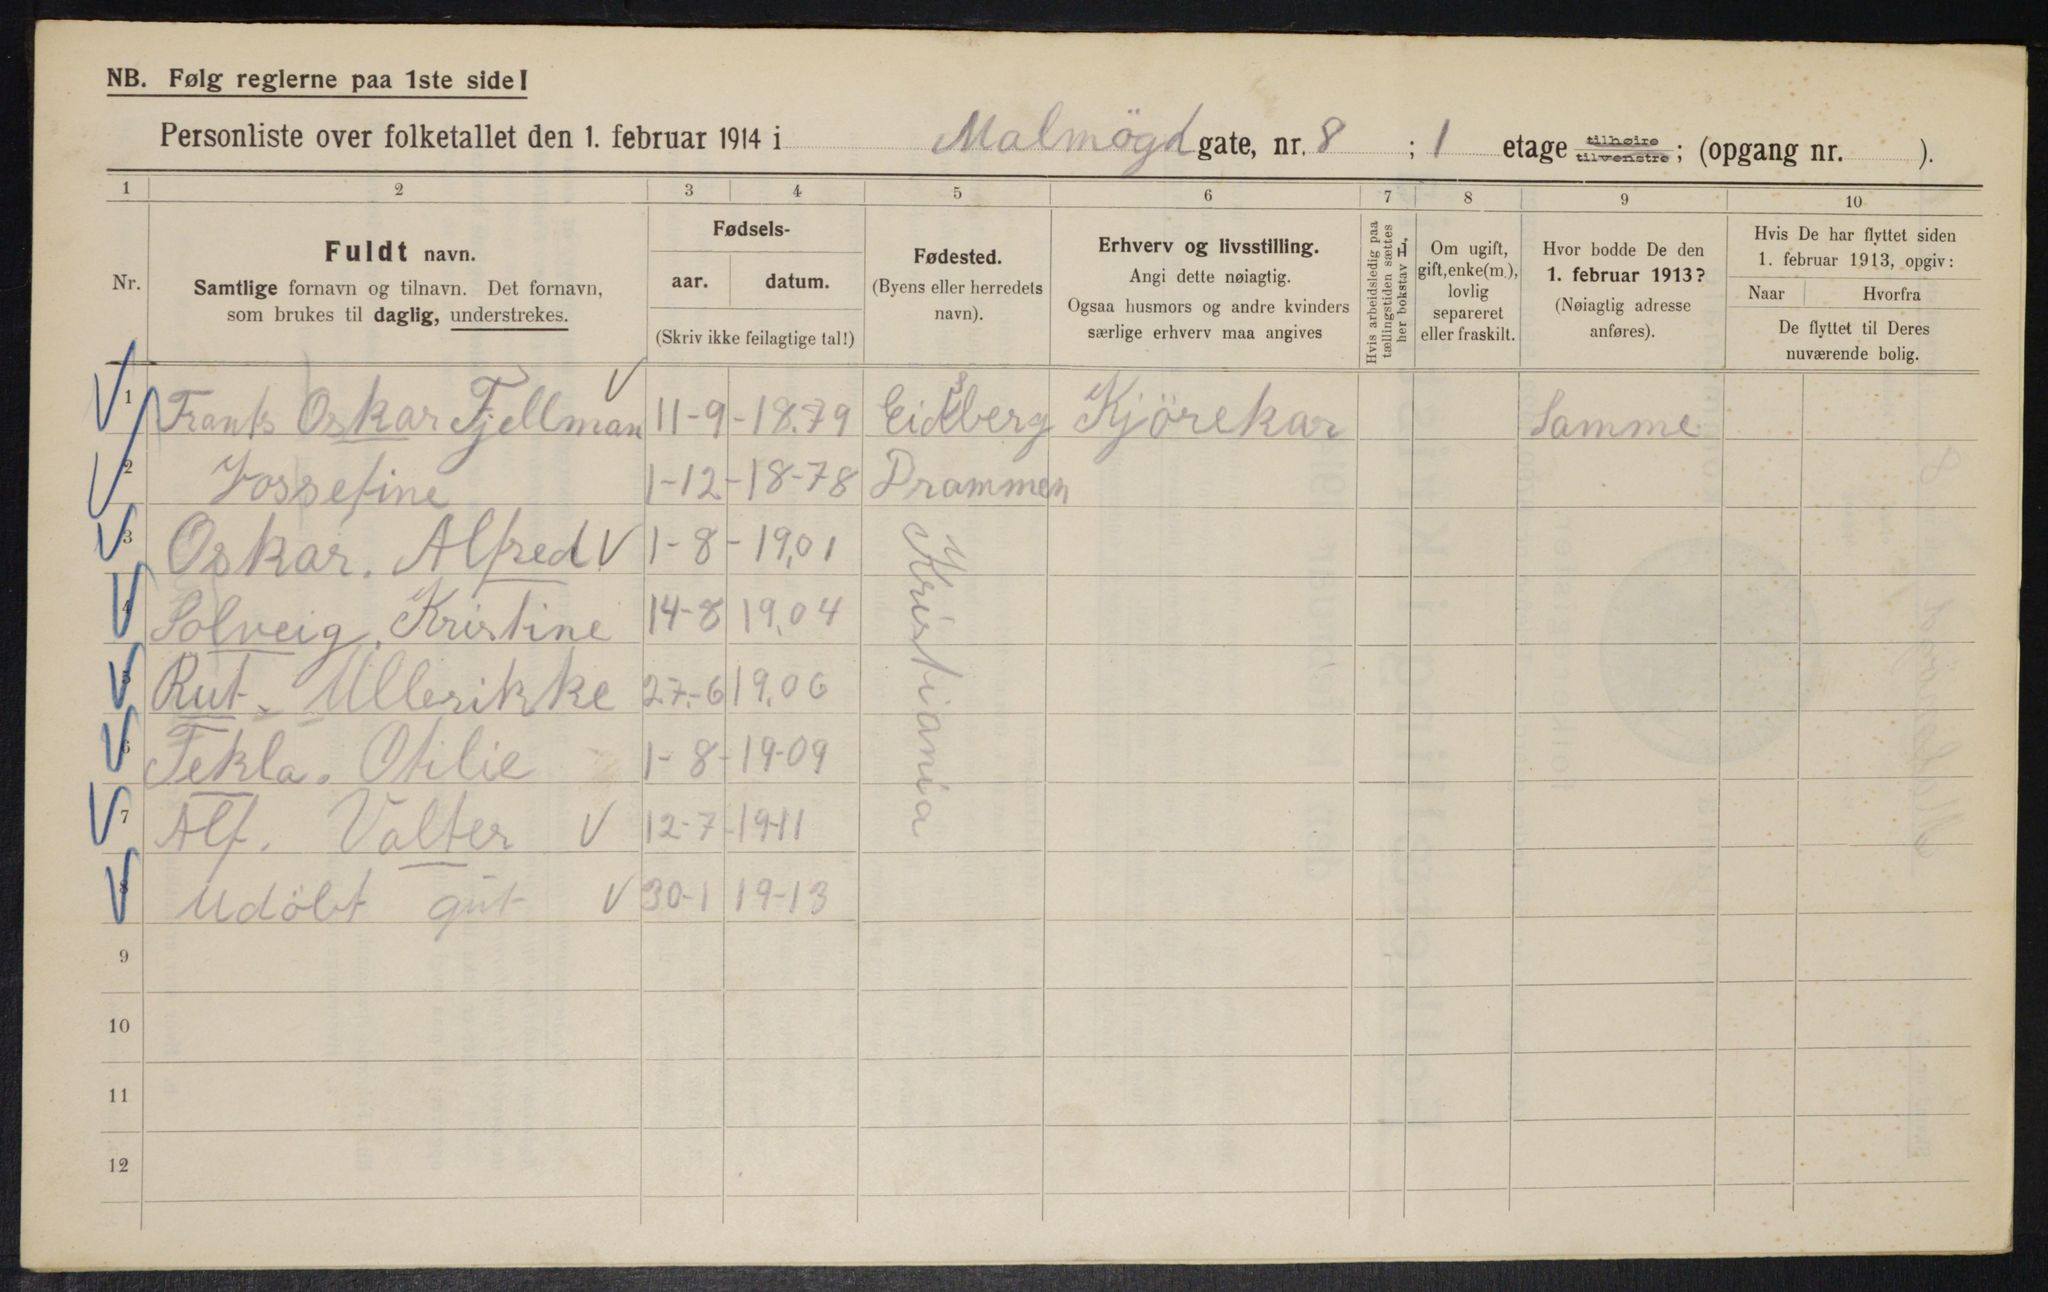 NB. Følg reglerne paa 1ste side!
Personliste over folketallet den 1. februar 1914 i Malmögd gate, nr. 8 ; 1 etage tilhøire / tilvenstre ; (opgang nr. ).
1 2 3 4 5 6 7 8 9 10
Nr.
Fuldt navn.
Samtlige fornavn og tilnavn. Det fornavn,
som brukes til daglig, understrekes.
Fødsels-
aar. datum.
(Skriv ikke feilagtige tal!)
Fødested.
(Byens eller herredets
navn).
Erhverv og livsstilling.
Angi dette nøiagtig.
Ogsaa husmors og andre kvinders
særlige erhverv maa angives
Hvis arbeidsledig paa
tællingstiden sættes
her bokstav L.
Om ugift,
gift, enke(m.),
lovlig
separeret
eller fraskilt.
Hvor bodde De den
1. februar 1913?
(Nøiagtig adresse
anføres).
Hvis De har flyttet siden
1. februar 1913, opgiv:
Naar Hvorfra
De flyttet til Deres
nuværende bolig.
1 Frants Oskar Fjellman 11-9-18.79 Eidsberg Kjörekar Samme
2 Jossefine 1-12-18-78 Drammen
3 Oskar. Alfred 1-8-19,01 Kristiania
4 Solveig. Kristine 14-8 19,04
5 Rut. Ullerikke 27.-6 19,06
6 Tekla. Otilie 1-8-19-09
7 Alf. Valter 12-7-19-11
8 Udöbt gut 30-1 19-13
9
10
11
12